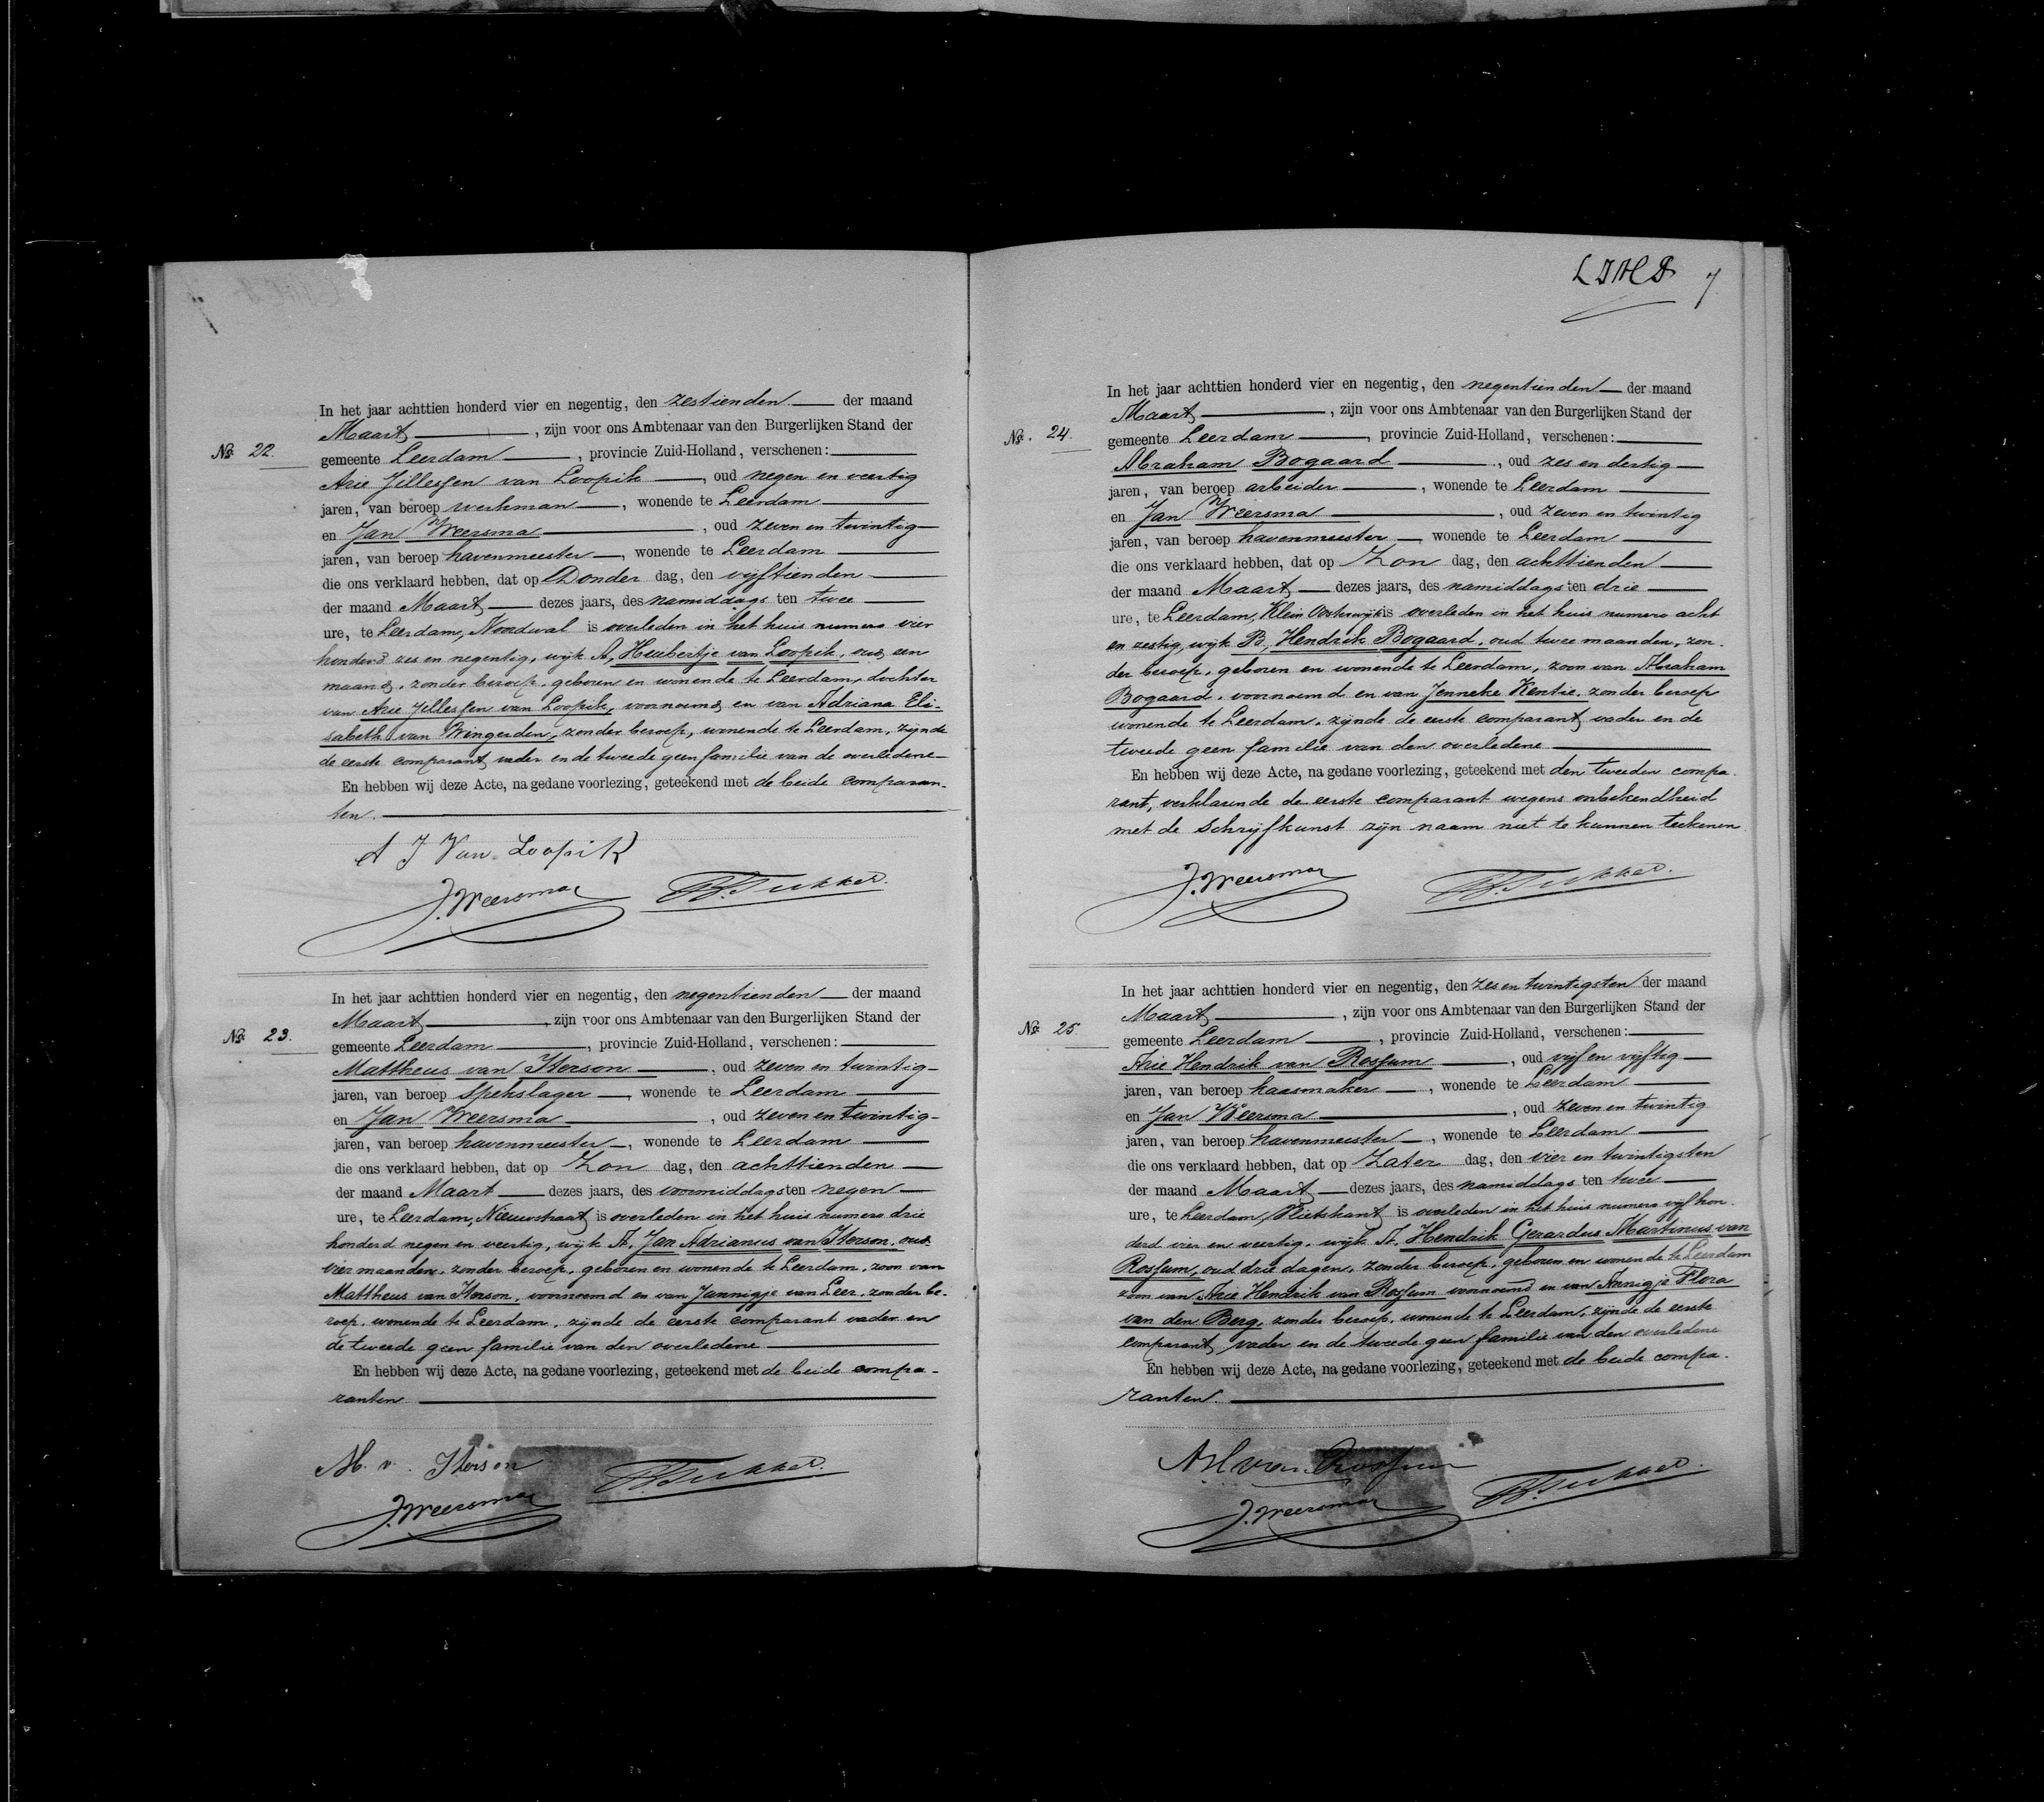 In het jaar achttien honderd vier en negentig, den zestienden der maand
Maart, zijn voor ons Ambtenaar van den Burgerlijken Stand der
No. 22.
gemeente Leerdam, provincie Zuid-Holland, verschenen:
Arie Jillessen van Loopik, oud negen en veertig
jaren, van beroep werkman, wonende te Leerdam
en Jan Weersma, oud zeven en twintig
jaren, van beroep havenmeester, wonende te Leerdam
die ons verklaard hebben, dat op Donder dag, den vijftienden
der maand Maart dezes jaars, des namiddags ten twee
ure, te Leerdam, Noordwal is overleden in het huis numero vier
honderd zes en negentig, wijk A, Huibertje van Loopik, oud een
maand, zonder beroep, geboren en wonende te Leerdam, dochter
van Arie Jillessen van Loopik, voornoemd en van Adriana Eli-
sabeth van Wingerden, zonder beroep, wonende te Leerdam, zijnde
de eerste comparant vader en de tweede geen familie van de overledene
En hebben wij deze Acte, na gedane voorlezing, geteekend met de beide comparan-
ten.
A J Van Loopik
J. Weersma
In het jaar achttien honderd vier en negentig, den negentienden der maand
Maart, zijn voor ons Ambtenaar van den Burgerlijken Stand der
No. 23.
gemeente Leerdam, provincie Zuid-Holland, verschenen:
Mattheus van Iterson, oud zeven en twintig
jaren, van beroep spekslager, wonende te Leerdam
en Jan Weersma, oud zeven en twintig
jaren, van beroep havenmeester, wonende te Leerdam
die ons verklaard hebben, dat op Zon dag, den achttienden
der maand Maart dezes jaars, des voormiddags ten negen
ure, te Leerdam, Nieuwstraat is overleden in het huis numero drie
honderd negen en veertig, wijk A, Jan Adrianus van Iterson, oud
vier maanden, zonder beroep, geboren en wonende te Leerdam, zoon van
Mattheus van Iterson, voornoemd en van Jannigje van Leer, zonder be-
roep, wonende te Leerdam, zijnde de eerste comparant vader en
de tweede geen familie van den overledene
En hebben wij deze Acte, na gedane voorlezing, geteekend met de beide compa-
ranten
M. v. Iterson
J. Weersma
7
In het jaar achttien honderd vier en negentig, den negentienden der maand
Maart, zijn voor ons Ambtenaar van den Burgerlijken Stand der
No. 24.
gemeente Leerdam, provincie Zuid-Holland, verschenen:
Abraham Bogaard, oud zes en dertig
jaren, van beroep arbeider, wonende te Leerdam
en Jan Weersma, oud zeven en twintig
jaren, van beroep havenmeester, wonende te Leerdam
die ons verklaard hebben, dat op Zon dag, den achttienden
der maand Maart dezes jaars, des namiddags ten drie
ure, te Leerdam, Klein Oosterwijk is overleden in het huis numero acht
en zestig, wijk B, Hendrik Bogaard, oud twee maanden, zon-
der beroep, geboren en wonende te Leerdam, zoon van Abraham
Bogaard, voornoemd en van Jenneke Kentie, zonder beroep
wonende te Leerdam, zijnde de eerste comparant vader en de
tweede geen familie van den overledene
En hebben wij deze Acte, na gedane voorlezing, geteekend met den tweeden compa-
rant, verklarende de eerste comparant wegens onbekendheid
met de schrijfkunst zijn naam niet te kunnen teekenen
J. Weersma
In het jaar achttien honderd vier en negentig, den zes en twintigsten der maand
Maart, zijn voor ons Ambtenaar van den Burgerlijken Stand der
No. 25
gemeente Leerdam, provincie Zuid-Holland, verschenen:
Arie Hendrik van Rossum, oud vijf en vijftig
jaren, van beroep kaasmaker, wonende te Leerdam
en Jan Weersma, oud zeven en twintig
jaren, van beroep havenmeester, wonende te Leerdam
die ons verklaard hebben, dat op Zater dag, den vier en twintigsten
der maand Maart dezes jaars, des namiddags ten twee
ure, te Leerdam, Vlietskant is overleden in het huis numero vijf hon-
derd vier en veertig, wijk A, Hendrik Gerardus Martinus van
Rossum, oud drie dagen, zonder beroep, geboren en wonende te Leerdam
zoon van Arie Hendrik van Rossum voornoemd en van Annigje Flora
van den Berg, zonder beroep, wonende te Leerdam, zijnde de eerste
comparant vader en de tweede geen familie van den overledene
En hebben wij deze Acte, na gedane voorlezing, geteekend met de beide compa-
ranten.
A H van Rossum
J. Weersma